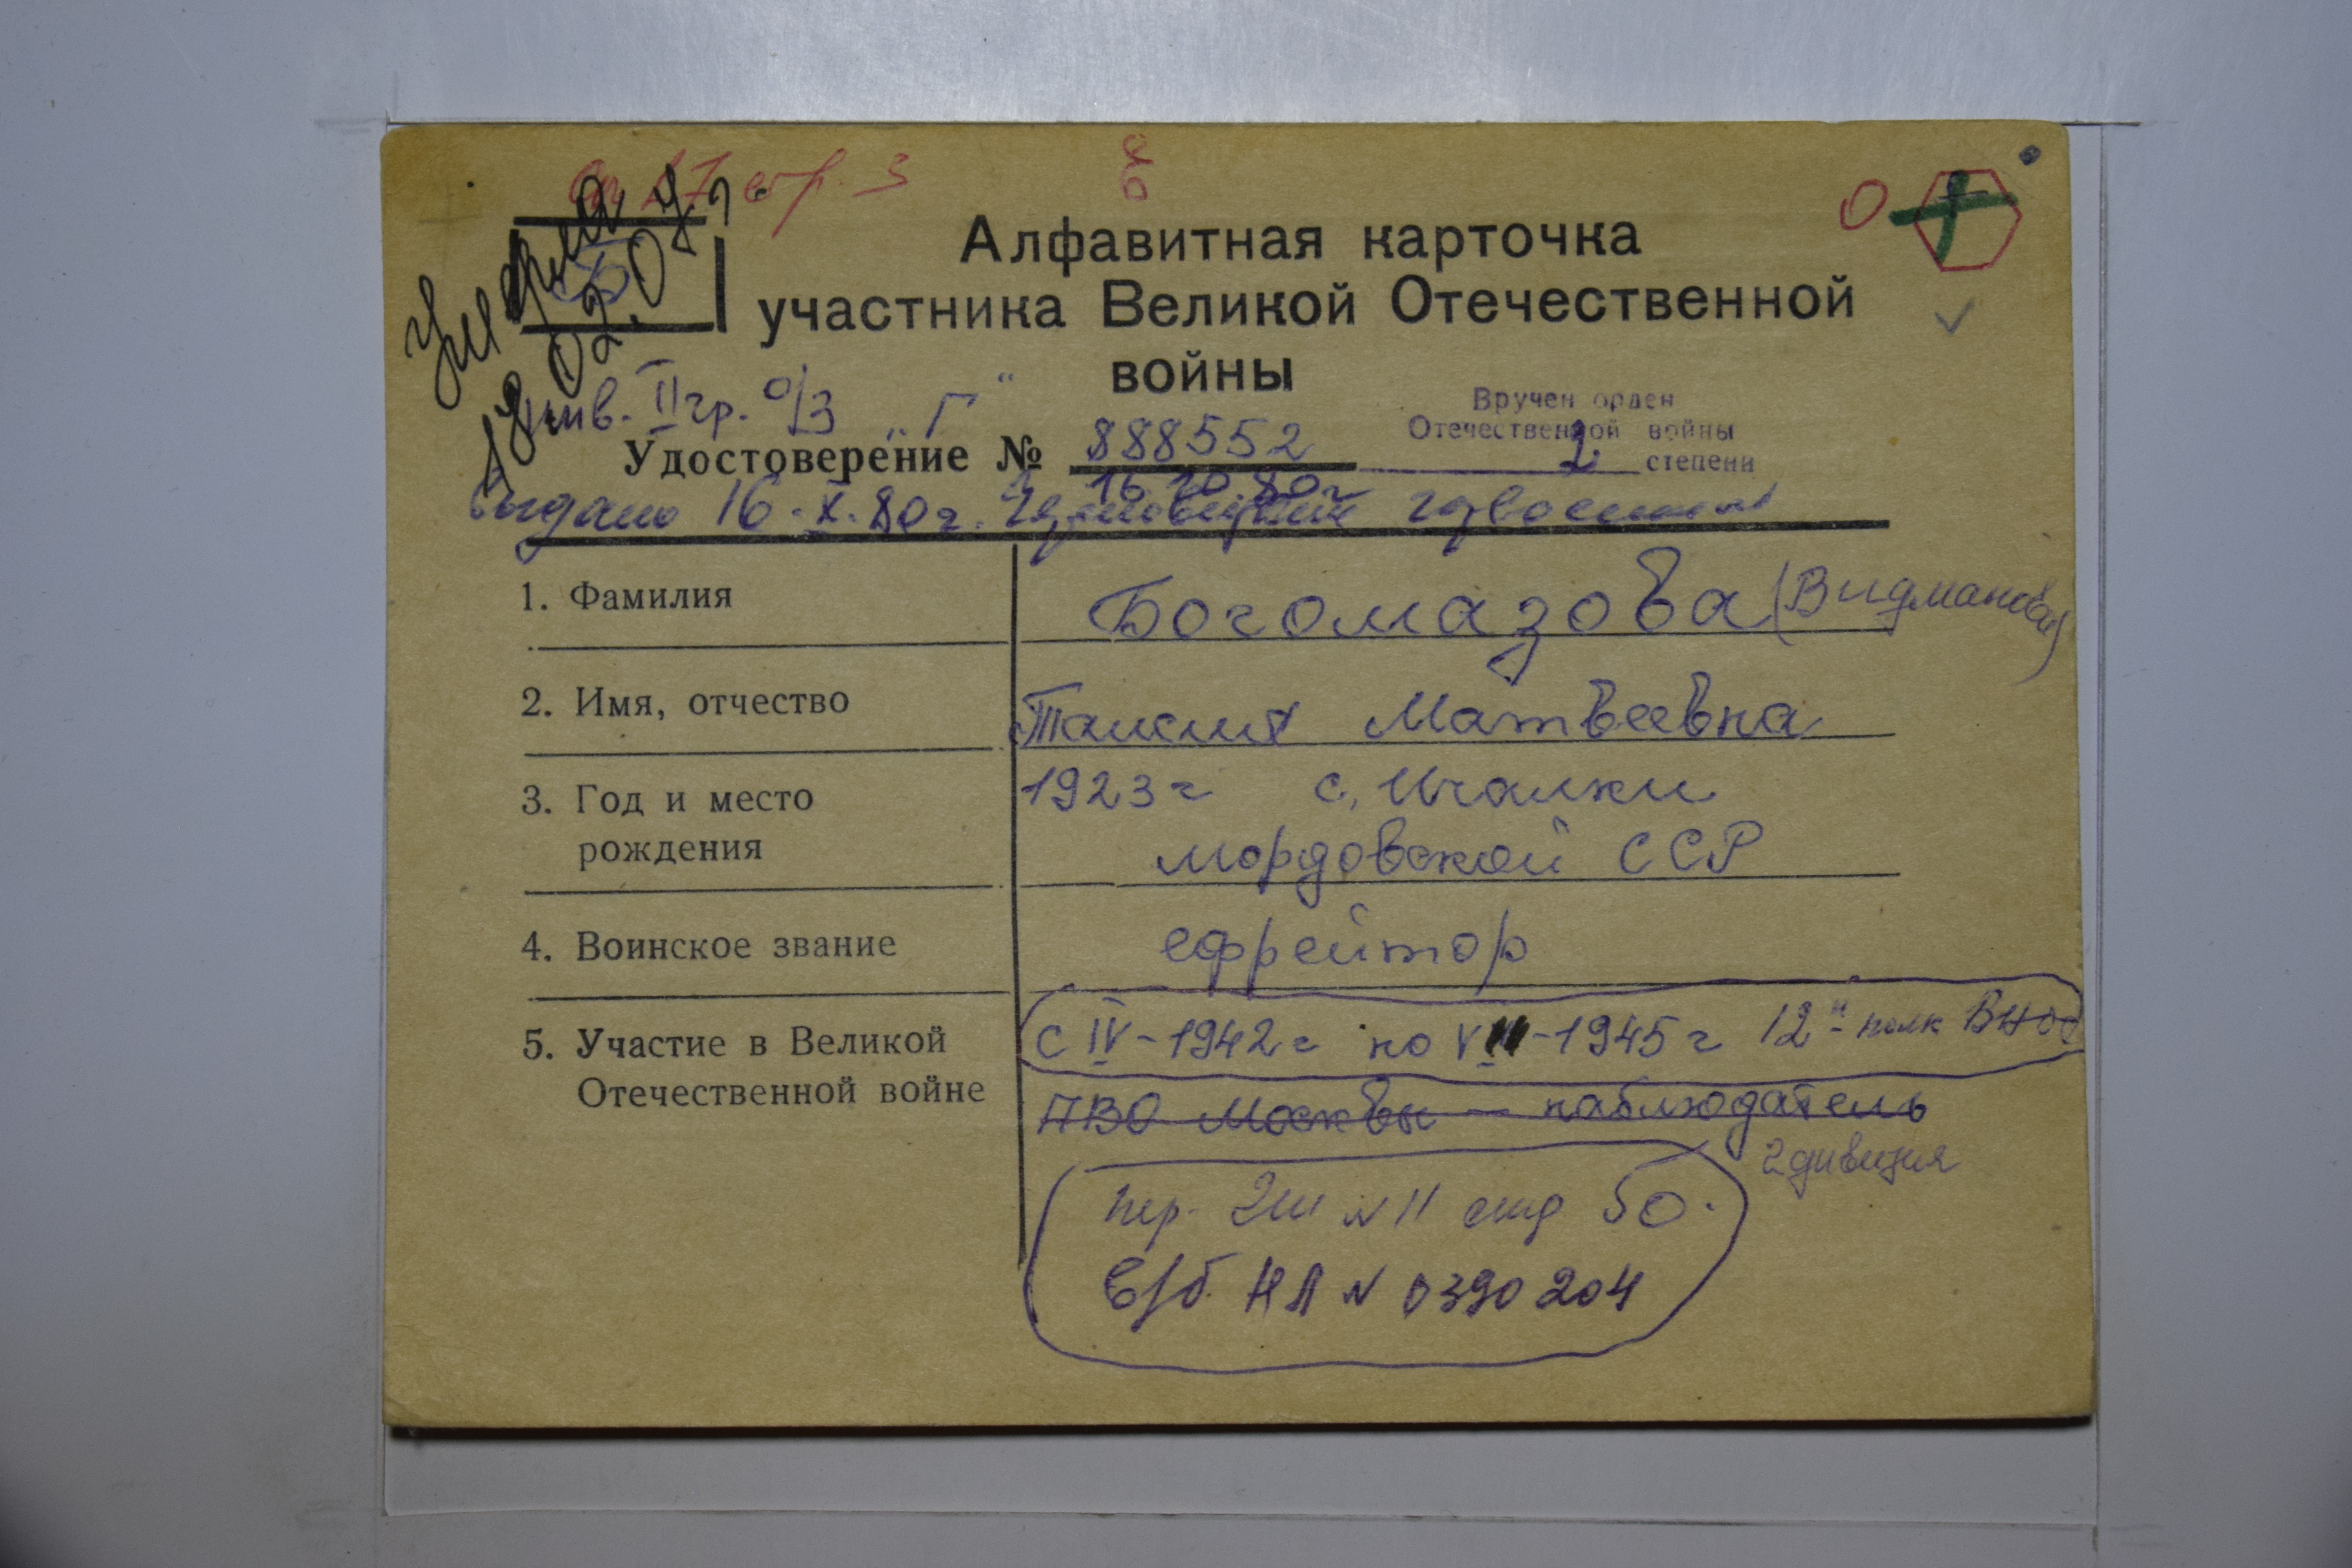 стр 3
умерла
18.02.07г.
Б
Алфавитная карточка
участника Великой Отечественной
войны
инв. II гр. о/з „Г“
Вручен орден
Отечественной войны
2 степени
Удостоверение № 888552
16.10.80г
выдано 16.X.80г.
1. Фамилия
Богомазова (Видманова)
2. Имя, отчество
Таисия Матвеевна
3. Год и место
рождения
1923г с. Ичалки
Мордовской ССР
4. Воинское звание
ефрейтор
5. Участие в Великой
Отечественной войне
с IV-1942г по VIII-1945г 12й полк ВНОС
ПВО Москвы — наблюдатель
2 дивизия
№ 11 50.
в/б НЛ № 0390204